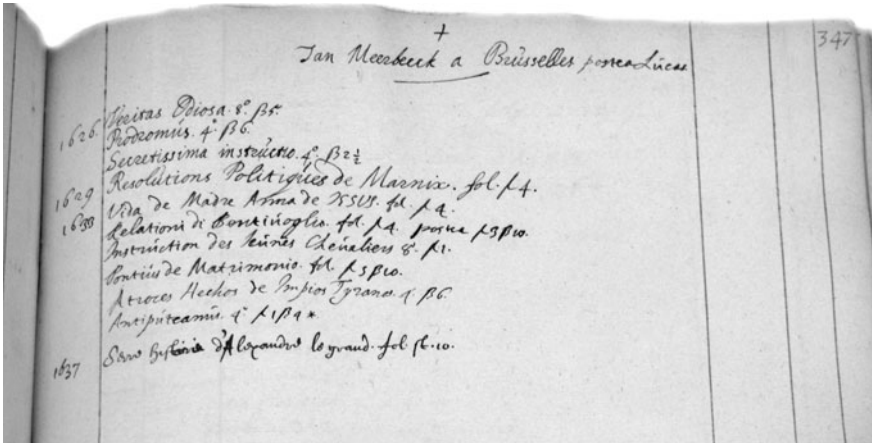 +
347
Jan Meerbeeck a Brüsselles postea Lucae
Veritas Odiosa. 8º. β5.
1626. Prodromüs. 4º. β6.
Secretissima instrüctio. 4º. β2½
Resolütions Politiqües de Marnix. fol. f4.
1629 Vida de Madre Anna de IESUS. fol. f4.
1633 Relationi di Bentiüoglio. fol. f4. postea f3β10.
Instrüction des Ieünes Cheüaliers 8º. f1.
Pontiüs de Matrimonio. fol. f5β10.
Atroces Hechos de Impios Tyranos. 4º. β6.
Antipüteanüs. 4º f1β4 *
1637 histoire d'Alexandre le grand. fol.